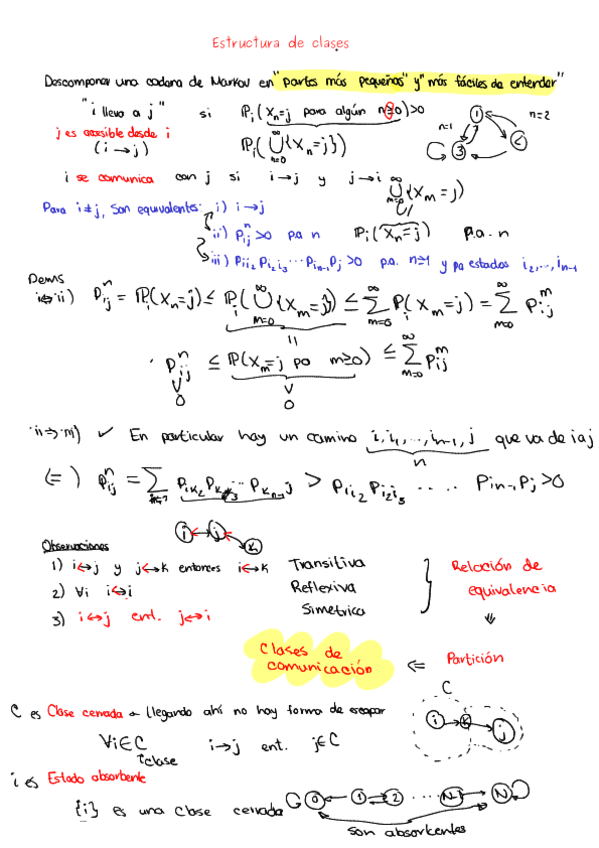 Estructura de clases
Descomponer una cadena de Markov en "partes más pequeñas" y "más fáciles de entender"
"i lleva a j" si ℙᵢ(Xₙ=j para algún n≥0)>0
n=1 n=2
1 2 3
j es accesible desde i
(i→j) ℙᵢ(⋃ₙ₌₀^∞{Xₙ=j})
i se comunica con j si i→j y j→i
⋃ₘ₌₀^∞{Xₘ=j}
Para i≠j, son equivalentes: i) i→j
ii) pᵢⱼⁿ>0 p.a n ℙᵢ(Xₙ=j) p.a. n
iii) Pᵢᵢ₂ Pᵢ₂ᵢ₃ ... Pᵢₙ₋₁Pj>0 p.a. n≥1 y pa estados i₂,...,iₙ₋₁
Dems
i⇔ii) pᵢⱼⁿ = ℙᵢ(Xₙ=j) ≤ ℙᵢ(⋃ₘ₌₀^∞{Xₘ=j}) ≤ ∑ₘ₌₀^∞ Pᵢ(Xₘ=j) = ∑ₘ₌₀^∞ Pᵢⱼᵐ
pᵢⱼⁿ ≤ ℙ(Xₘ=j po m≥0) ≤ ∑ₘ₌₀^∞ Pᵢⱼᵐ
∨ ∨
0 0
ii⇒iii) ✓ En particular hay un camino i, i₁, ..., iₙ₋₁, j que va de i a j
n
(⇐) pᵢⱼⁿ = ∑ Pᵢₖ₂ Pₖ₂ₖ₃ ... Pₖₙ₋₁j > Pᵢᵢ₂ Pᵢ₂ᵢ₃ .... Pᵢₙ₋₁Pj>0
i j k
Observaciones
1) i↔j y j↔k entonces i↔k Transitiva
2) ∀i i↔i Reflexiva
3) i↔j ent. j↔i Simetrica
Relación de
equivalencia
⇓
Clases de
comunicación
⇐ Partición
C es Clase cerrada - llegando ahí no hay forma de escapar
C
i k j
∀i∈C i→j ent. j∈C
↑clase
i es Estado absorbente
{i} es una Clase cerrada
0 1 2 ... N-1 N
son absorbentes